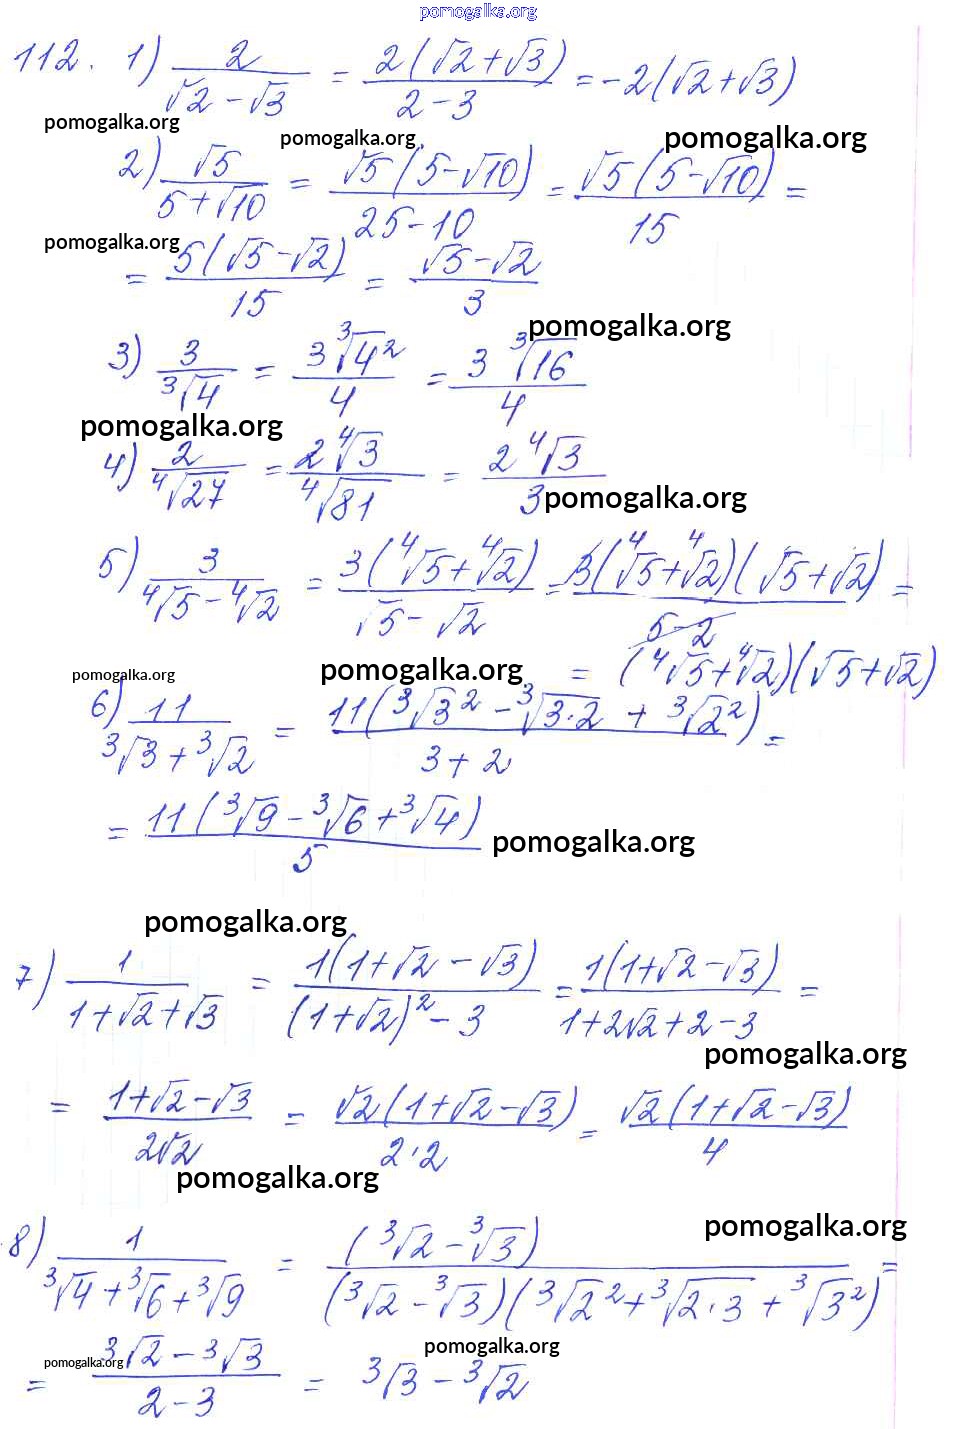 pomogalka.org
112. 1) 2/(√2-√3) = 2(√2+√3)/(2-3) = -2(√2+√3)
pomogalka.org
pomogalka.org
pomogalka.org
2) √5/(5+√10) = √5(5-√10)/(25-10) = √5(5-√10)/15 =
pomogalka.org
= 5(√5-√2)/15 = (√5-√2)/3
pomogalka.org
3) 3/∛4 = 3∛4²/4 = 3∛16/4
pomogalka.org
4) 2/∜27 = 2∜3/∜81 = 2∜3/3
pomogalka.org
5) 3/(∜5-∜2) = 3(∜5+∜2)/(√5-√2) = 3(∜5+∜2)(√5+√2)/(5-2) =
pomogalka.org
pomogalka.org
= (∜5+∜2)(√5+√2)
6) 11/(∛3+∛2) = 11(∛3²-∛3·2+∛2²)/(3+2) =
= 11(∛9-∛6+∛4)/5
pomogalka.org
pomogalka.org
7) 1/(1+√2+√3) = 1(1+√2-√3)/((1+√2)²-3) = 1(1+√2-√3)/(1+2√2+2-3) =
pomogalka.org
= (1+√2-√3)/(2√2) = √2(1+√2-√3)/(2·2) = √2(1+√2-√3)/4
pomogalka.org
pomogalka.org
8) 1/(∛4+∛6+∛9) = (∛2-∛3)/((∛2-∛3)(∛2²+∛2·3+∛3²)) =
pomogalka.org
pomogalka.org
= (∛2-∛3)/(2-3) = ∛3-∛2